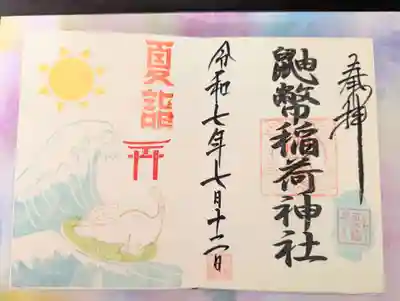 奉拝
鼬幣稲荷神社
令和七年七月十二日
夏詣